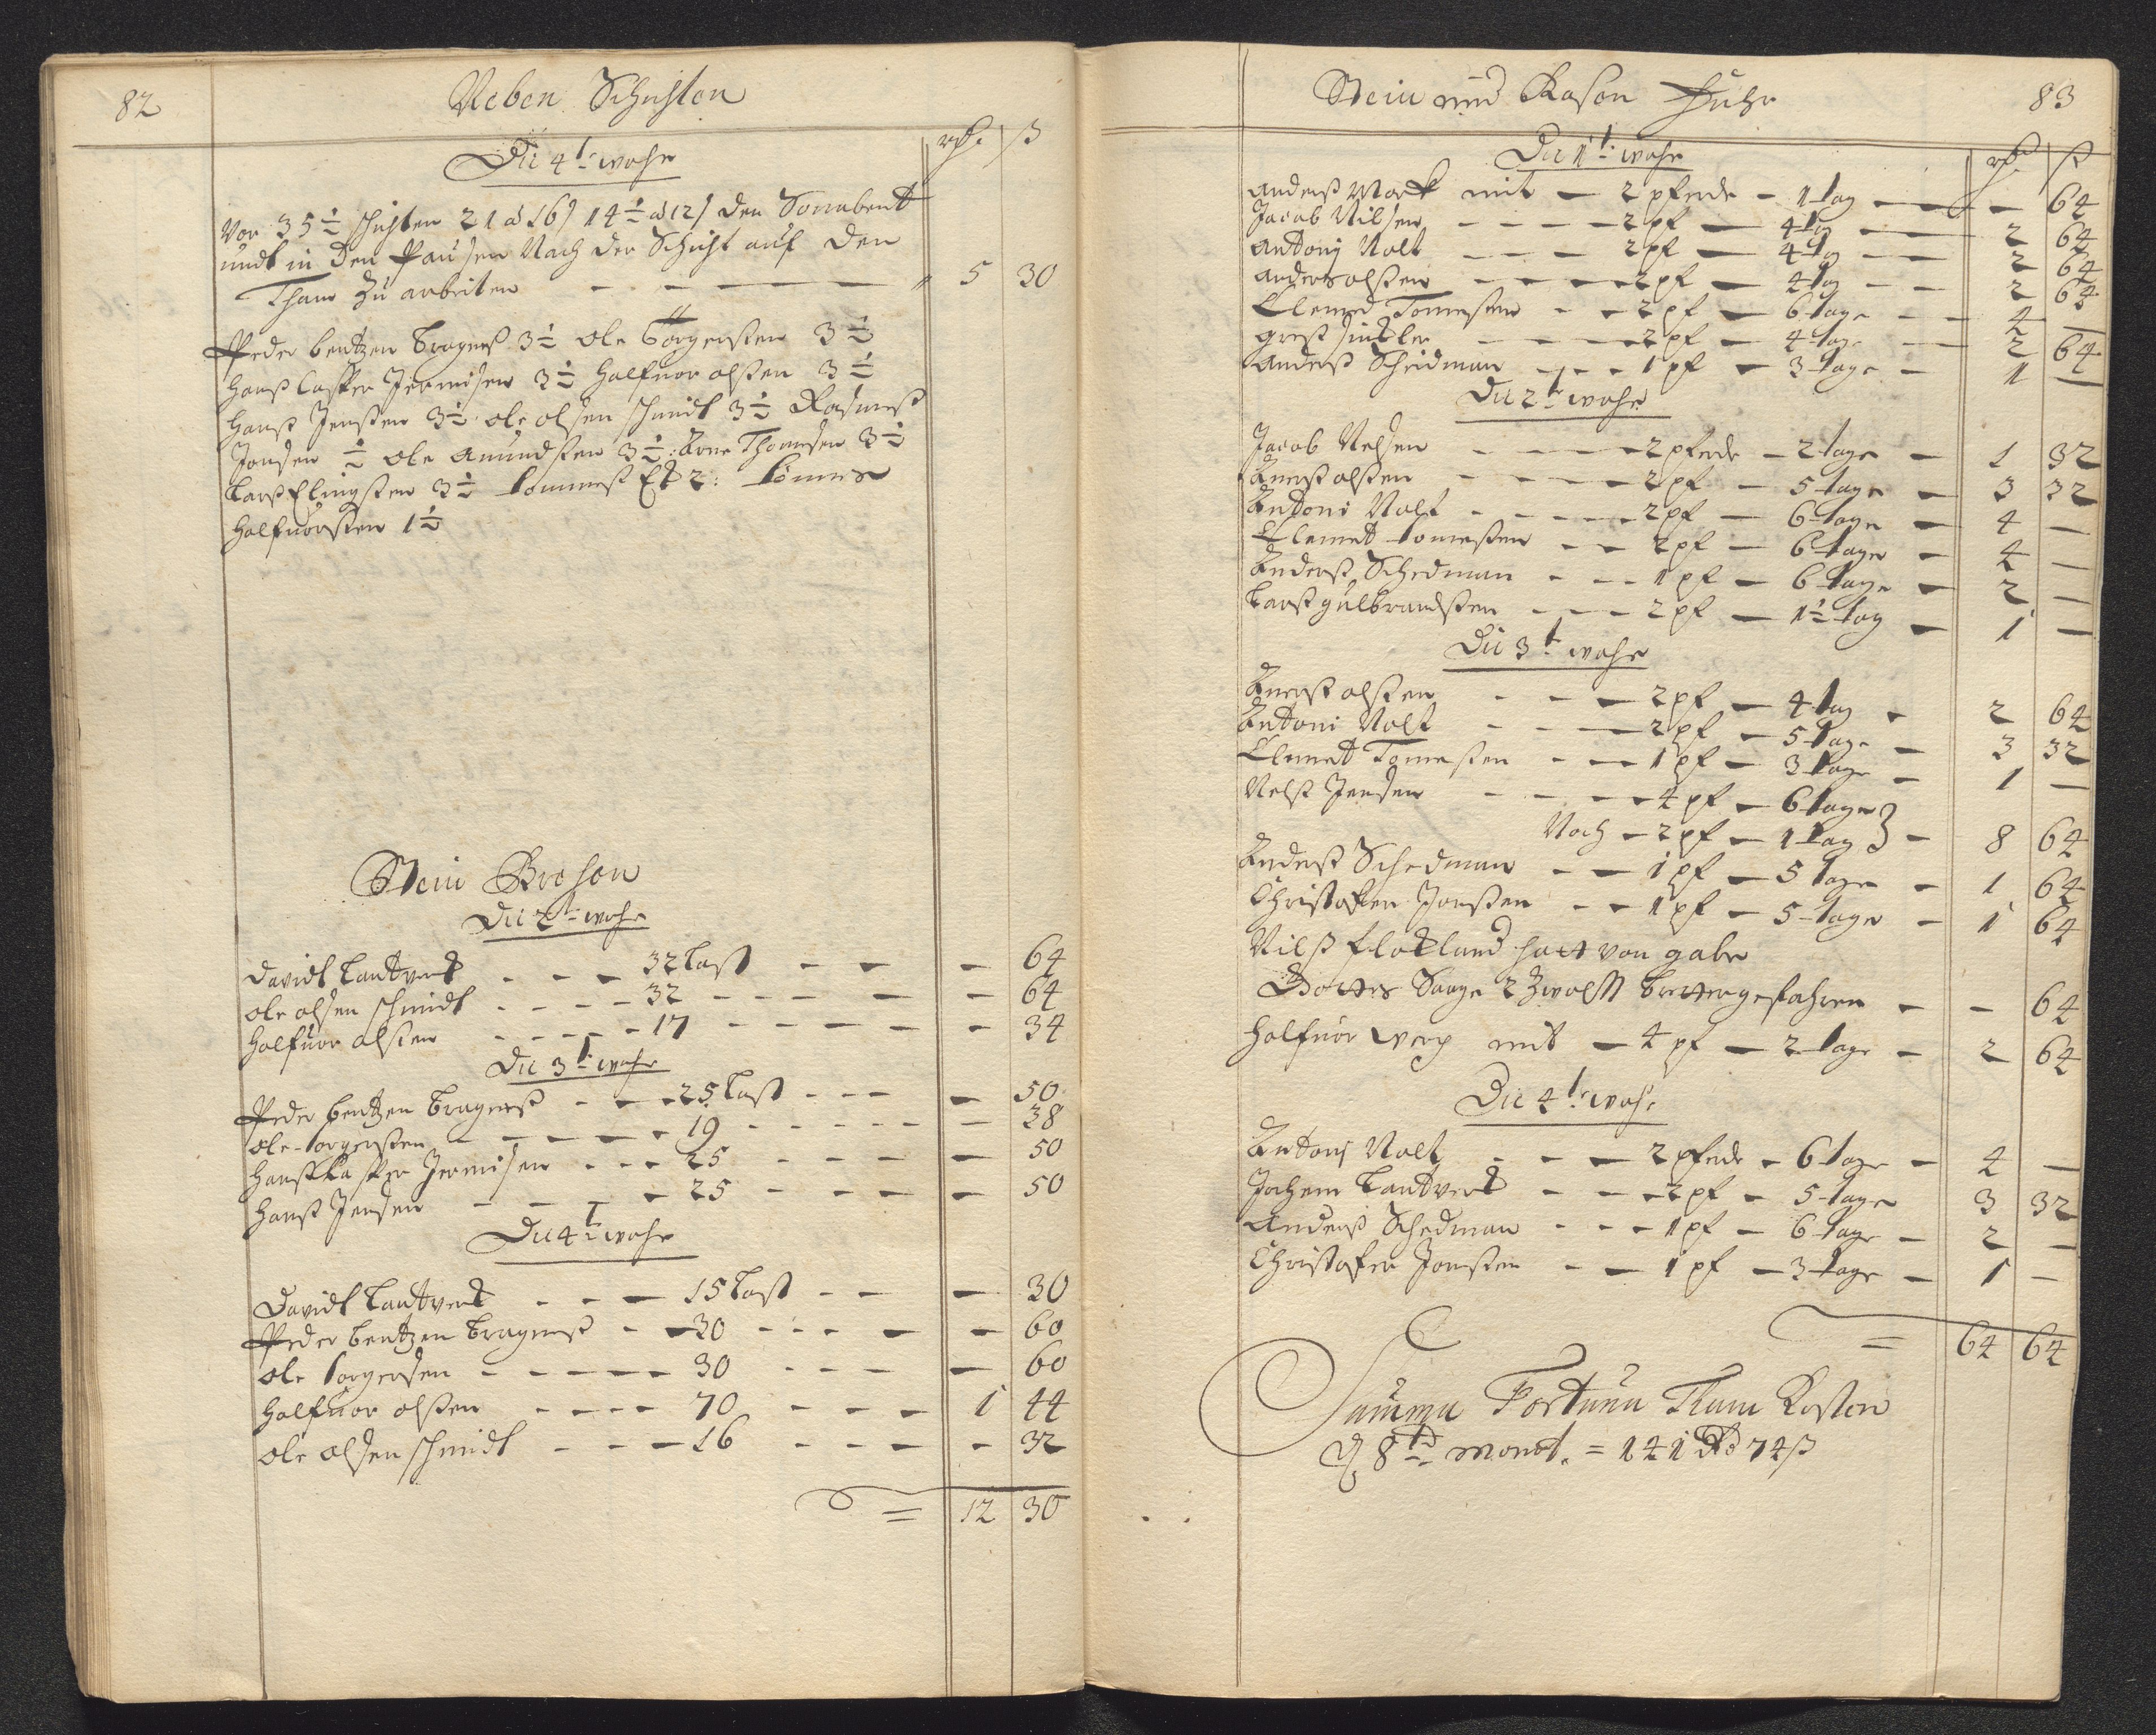 82
Neben Schichten
rd. ß
Die 4t. woche
Vor 35 1/2 schichten 21 à 16/ 14 1/2 à 12/ den Sonnabent
undt in den Pausen Nach der Schicht auf den
Tham zu arbeiten — — — — — 5 30
Peder bentzen bragneß 3 1/2 ole Torgerßen 3 1/2
Hanß Casper Jermisen 3 1/2 Halfuor olßen 3 1/2
Hanß Jenßen 3 1/2 ole olsen schmidt 3 1/2 Rasmuß
Jonsen 1/2 ole Amundßen 3 1/2: Arne Thomesen 3 1/2
Larß Elingßen 3 1/2 2: tönnes
Halfuorßen 1 1/2
Stein Brechen
Die 2t. woche
Davidt Lantvert — — — 32 Last — — — 64
ole olsen schmidt — — — 32 — — — 64
Halfuor olßen — — — 17 — — — 34
Die 3t. woche
Peder bentzen bragneß — — 25 Last — — — 50
ole torgerßen — — — 19 — — — 38
Hanß Casper Jermisen — — 25 — — — 50
Hanß Jensen — — — 25 — — — 50
Die 4t. woche
Davidt Lantvert — — — 15 Last — — — 30
Peder bentzen bragneß — 30 — — — 60
ole torgersen — — — 30 — — — 60
Halfuor olßen — — — 70 — — — 1 44
ole olsen schmidt — — — 16 — — — 32
= 12 30
Stein und Rasen Fuhr
83
Die 1t. woche
rd. ß
Anderß Mork mit — 2 pferde — 1 tag — — 64
Jacob Nilsen — — — 2 pf — 4 tag — 2 64
Antonj Nolt — — — 2 pf — 4 tag — 2 64
Anders olßen — — — 2 pf — 4 tag — 2 64
Clemed Tomeßen — — 2 pf — 6 tage — 4 —
— — — 2 pf — 4 tage — 2 64
Anderß Schedman — — 1 pf — 3 tage — 1 —
Die 2t. woche
Jacob Nelsen — — — 2 pferde — 2 tage — 1 32
Anerß olßen — — — 2 pf — 5 tage — 3 32
Antoni Nolt — — — 2 pf — 6 tage — 4 —
Clemet tomeßen — — 2 pf — 6 tage — 4 —
Anderß Schedman — — 1 pf — 6 tage — 2 —
Larß gulbrandßen — — 2 pf — 1 1/2 tag — 1 —
Die 3t. woche
Anerß olßen — — — 2 pf — 4 tag — 2 64
Antoni Nolt — — — 2 pf — 5 tage — 3 32
Clemet Tomeßen — — 1 pf — 3 tage — 1 —
Nelß Jensen — — — 4 pf — 6 tage }
Noch — 2 pf — 1 tag } — 8 64
Anderß Schedman — — 1 pf — 5 tage — 1 64
Christoffer Jonßen — — 1 pf — 5 tage — 1 64
Nilß flotland hatt von gabe
Gottes Sage 2 Zwolft bretter gefahren — — 64
Halfuor werp mit — 4 pf — 2 tage — 2 64
Die 4t. woche
Antonj Nolt — — — 2 pferde — 6 tage — 4 —
Jochem Lantvert — — 2 pf — 5 tage 3 32
Anderß Schedman — — 1 pf — 6 tage — 2 —
Christoffer Jonßen — — 1 pf — 3 tage — 1 —
= 64 64
Summa Fortuna Tham Kosten
8te monat. = 141 Rd 74 ß